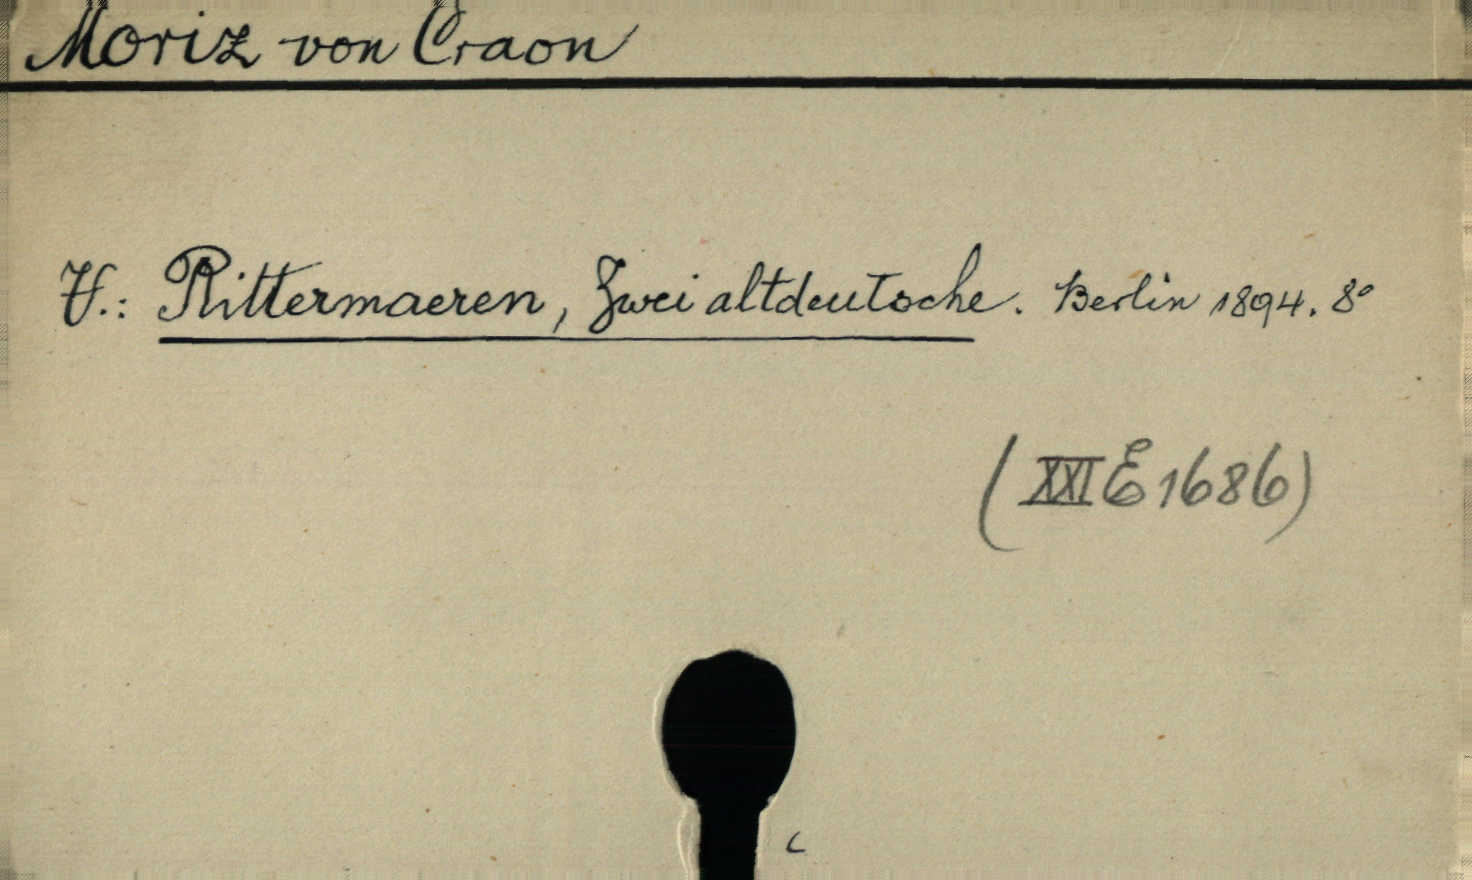 Moriz von Craon
V.: Rittermaeren, Zwei altdeutsche. Berlin 1894. 8°
(XXI E 1686)
c